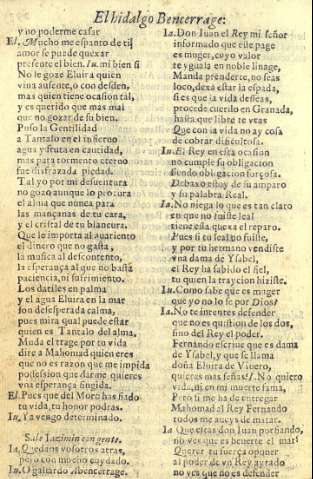 El hidalgo Bencerrage.
y no poderme casar
El. Mucho me espanto de ti
amor se puede quexar
presente el bien. Iu. mi bien si
No le goze Eluira quien
viua ausente, o con desden,
mas quien tiene ocasion tal,
y es querido que mas mal
que no gozar de su bien.
Puso la Gentilidad
a Tantalo en el infierno
agua y fruta en cantidad,
mas para tormento eterno
fue disfrazada piedad.
Tal yo por mi desuentura
no gozo aunque lo procura
el alma que nunca para
las mançanas de tu cara,
y el cristal de tu blancura.
Que le importa al auariento
el dinero que no gasta,
la musica al descontento,
la esperança al que no basta
paciencia, ni sufrimiento.
Los datiles en palma
y el agua Eluira en la mar
son desesperada calma,
pues mira qual puede estar
quien es Tantalo del alma.
Muda el trage por tu vida
dire a Mahomad quien eres
que no es razon que me impida
possession que darme quieres
vna esperança fingida.
El. Pues que del Moro has fiado
tu vida, tu honor podras.
In. Ya vengo determinado.
Sale Iacimin con gente.
Ia. Quedaos vosotros atras,
pero con mucho cuydado.
In. O gallardo Abencerrage.
Ia. Don Iuan el Rey mi señor
informado que este page
es muger, cuyo valor
te yguala en noble linage,
Manda prenderte, no seas
loco, dexa estar la espada,
si es que la vida desseas,
procede cuerdo en Granada,
hasta que libre te veas
Que con la vida no ay cosa
de cobrar dificultosa.
In. El Rey en esta ocasion
no cumple su obligacion
siendo obligacion forçosa.
Debaxo estoy de su amparo
y su palabra Real.
Ia. No niega lo que es tan claro
en que no fuiste leal
tiene ella quexa el reparo.
Pues si tu leal no fuiste,
y por tu hermano vendiste
vna dama de Ysabel,
el Rey ha sabido el fiel,
tu quien la traycion hiziste.
In. Como sabe que es muger
que yo no lo se por Dios?
Ia. No te intentes defender
que no es question de los dos,
sino del Rey el poder.
Fernando escriue que es dama
de Ysabel, y que se llama
doña Eluira de Viuero,
quieres mas señas? I. No quiero
vida, ni en mi muerte fama,
Pero si me ha de entregar
Mahomad al Rey Fernando
todos me aueys de matar.
Ia. Que estas don Iuan porfiando,
no ves que es beuerte el mar
Querer tu fuerça oponer
al poder de vn Rey ayrado
no ves que no es defender